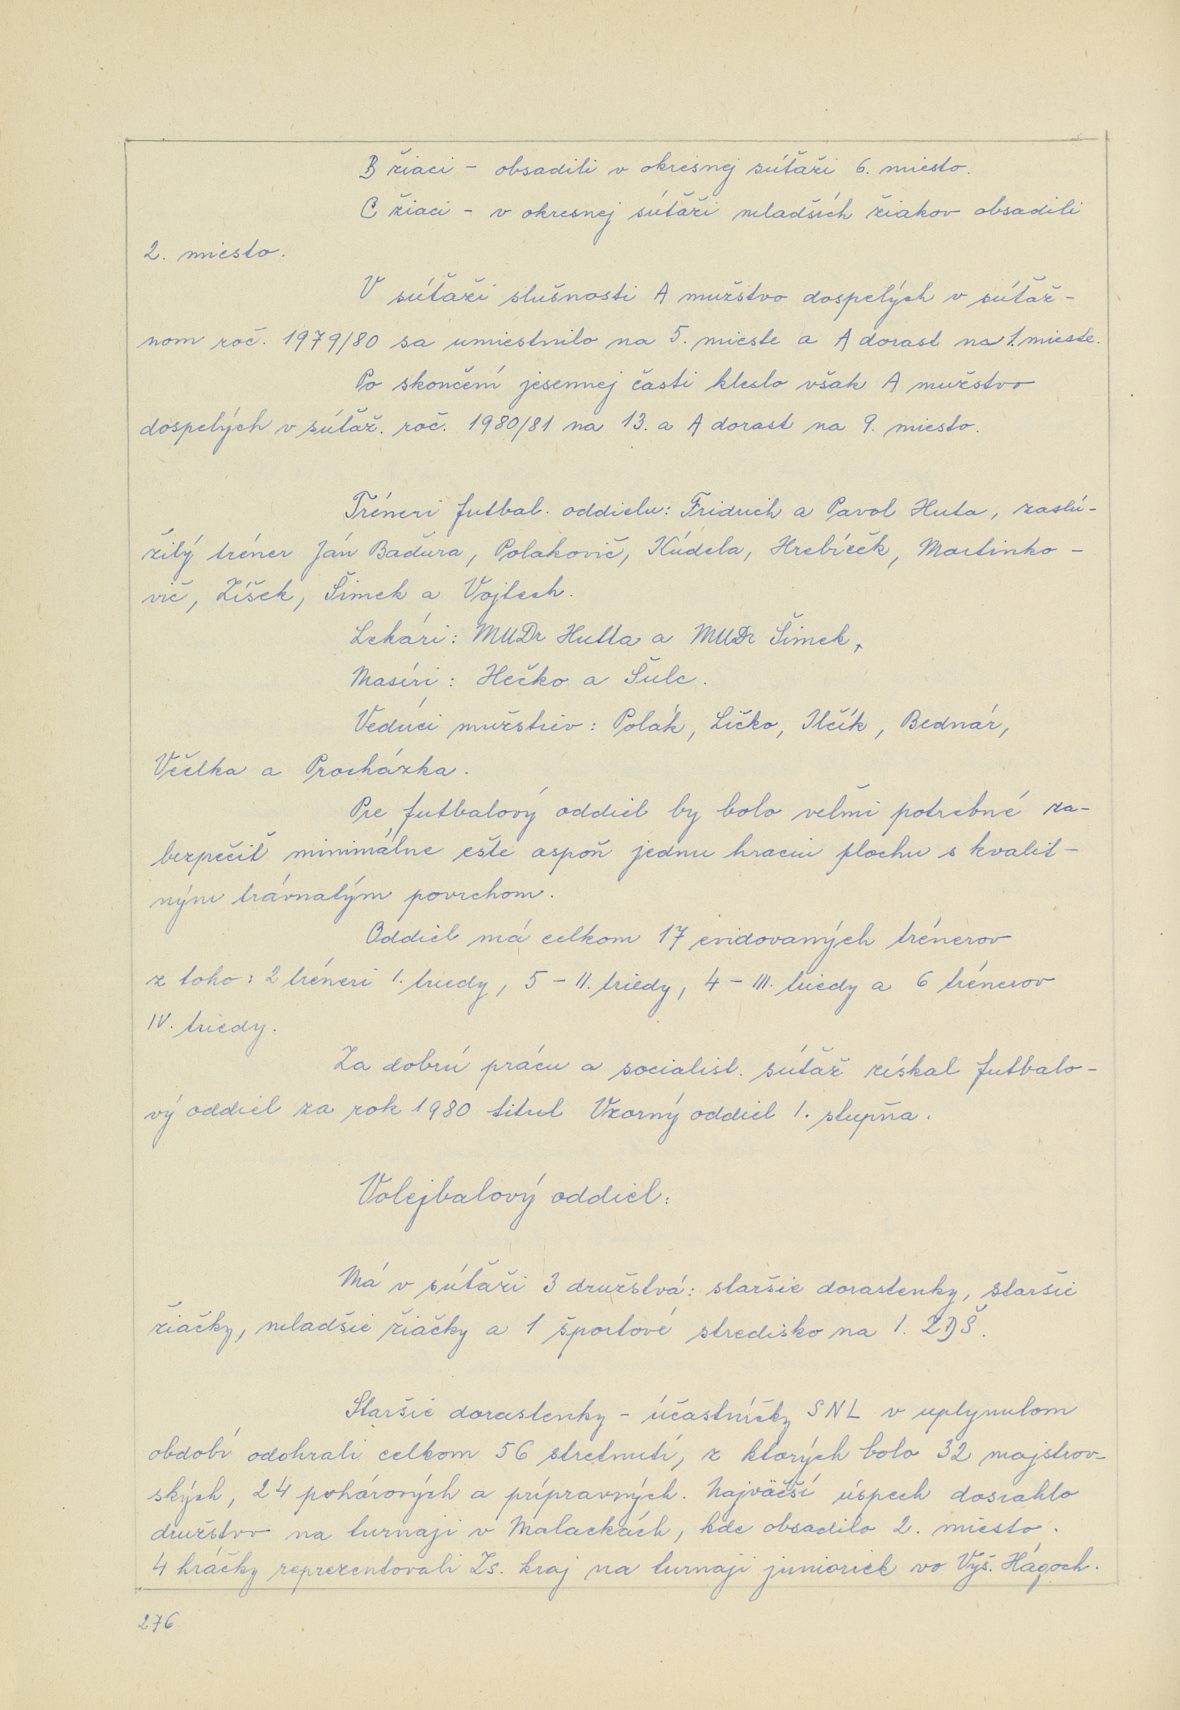 B žiaci - obsadili v okresnej súťaži 6. miesto.
C žiaci - v okresnej súťaži mladších žiakov obsadili
2. miesto.
V súťaži slušnosti A mužstvo dospelých v súťaž-
nom roč. 1979/80 sa umiestnilo na 5. mieste a A dorast na 1. mieste.
Po skončení jesennej časti kleslo však A mužstvo
dospelých v súťaž. roč. 1980/81 na 13. a A dorast na 9. miesto.
Tréneri futbal. oddielu: Fridrich a Pavol Huta, zaslú-
žilý tréner Ján Baďura, Polakovič, Kúdela, Hrebíček, Martinko-
vič, Zíšek, Šimek a Vojtech.
Lekári: MUDr Hutta a MUDr Šimek,
Maséri: Hečko a Šulc.
Vedúci mužstiev: Polák, Ličko, Ilčík, Bednár,
Včelka a Procházka.
Pre futbalový oddiel by bolo veľmi potrebné za-
bezpečiť minimálne ešte aspoň jednu hraciu plochu s kvalit-
ným trávnatým povrchom.
Oddiel má celkom 17 evidovaných trénerov
z toho: 2 tréneri I. triedy, 5 - II. triedy, 4 - III. triedy a 6 trénerov
IV. triedy.
Za dobrú prácu a socialist. súťaž získal futbalo-
vý oddiel za rok 1980 titul Vzorný oddiel I. stupňa.
Volejbalový oddiel:
Má v súťaži 3 družstvá: staršie dorastenky, staršie
žiačky, mladšie žiačky a 1 športové stredisko na I. ZDŠ.
Staršie dorastenky - účastníčky SNL v uplynulom
období odohrali celkom 56 stretnutí, z ktorých bolo 32 majstrov-
ských, 24 pohárových a prípravných. Najväčší úspech dosiahlo
družstvo na turnaji v Malackách, kde obsadilo 2. miesto.
4 hráčky reprezentovali Zs. kraj na turnaji junioriek vo Vyš. Hágoch.
276